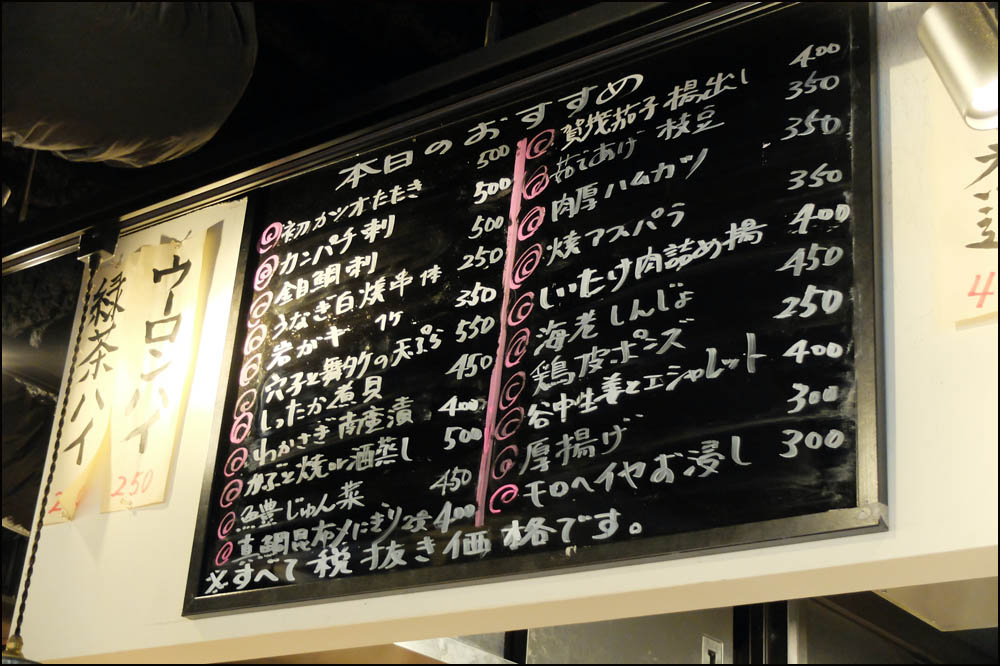 本日のおすすめ
初カツオたたき 500
カンパチ刺 500
金目鯛刺 500
うなぎ白焼串1本 250
岩ガキ 1ケ 350
穴子と舞タケの天ぷら 550
しったか煮貝 450
わかさぎ南蛮漬 400
かぶと焼or酒蒸し 500
じゅん菜 450
真鯛昆布〆にぎり2貫 400
賀茂茄子揚出し 400
茹であげ 枝豆 350
肉厚ハムカツ 350
焼アスパラ 350
しいたけ肉詰め揚 400
海老しんじょ 450
鶏皮ポンズ 250
谷中生姜とエシャレット 400
厚揚げ 300
モロヘイヤお浸し 300
※すべて税抜き価格です。
ウーロンハイ
250
緑茶ハイ
2
4